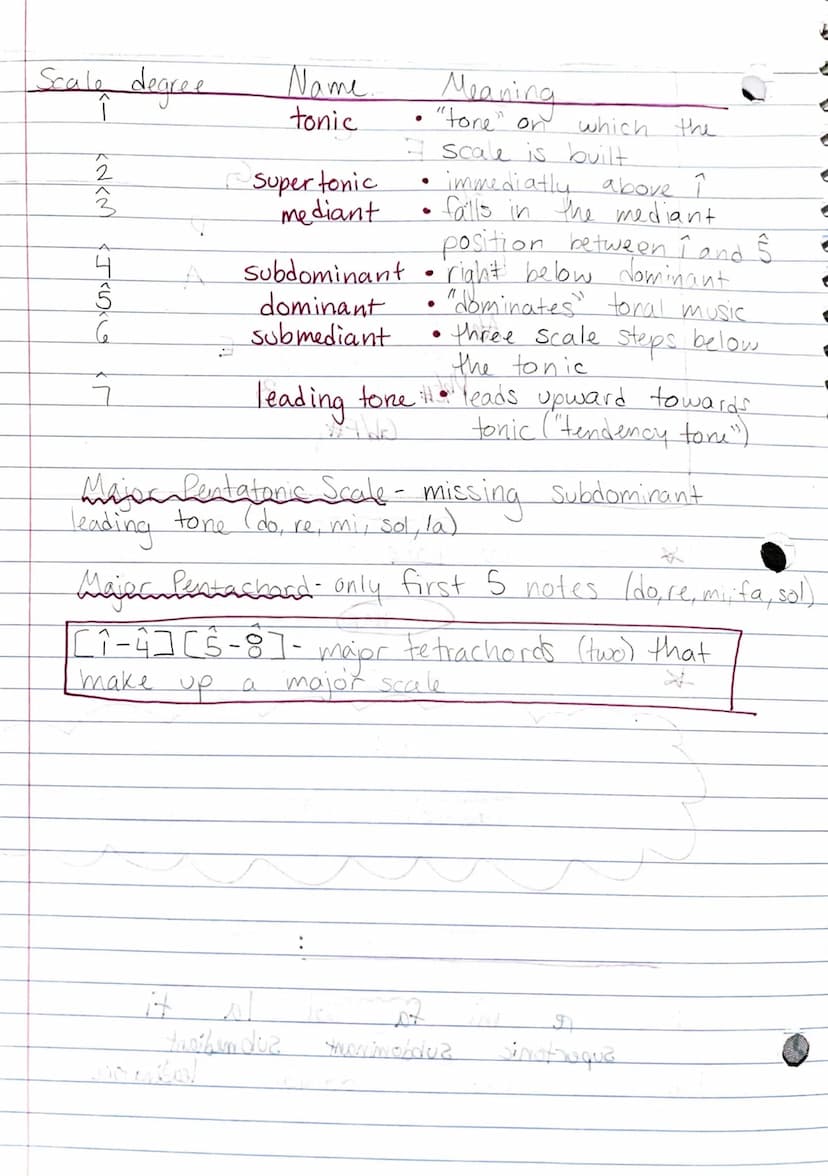 Scale degree Name Meaning
1̂ tonic • "tone" on which the
scale is built
2̂ supertonic • immediatly above 1̂
3̂ mediant • falls in the mediant
position between 1̂ and 5̂
4̂ subdominant • right below dominant
5̂ dominant • "dominates" tonal music
6̂ submediant • three scale steps below
the tonic
7̂ leading tone • leads upward towards
tonic ("tendency tone")
Major Pentatonic Scale - missing subdominant
leading tone (do, re, mi, sol, la)
Major Pentachord - only first 5 notes (do, re, mi, fa, sol)
[1̂-4̂][5̂-8̂] - major tetrachords (two) that
make up a major scale
re mi fa la ti
supertonic subdominant submediant